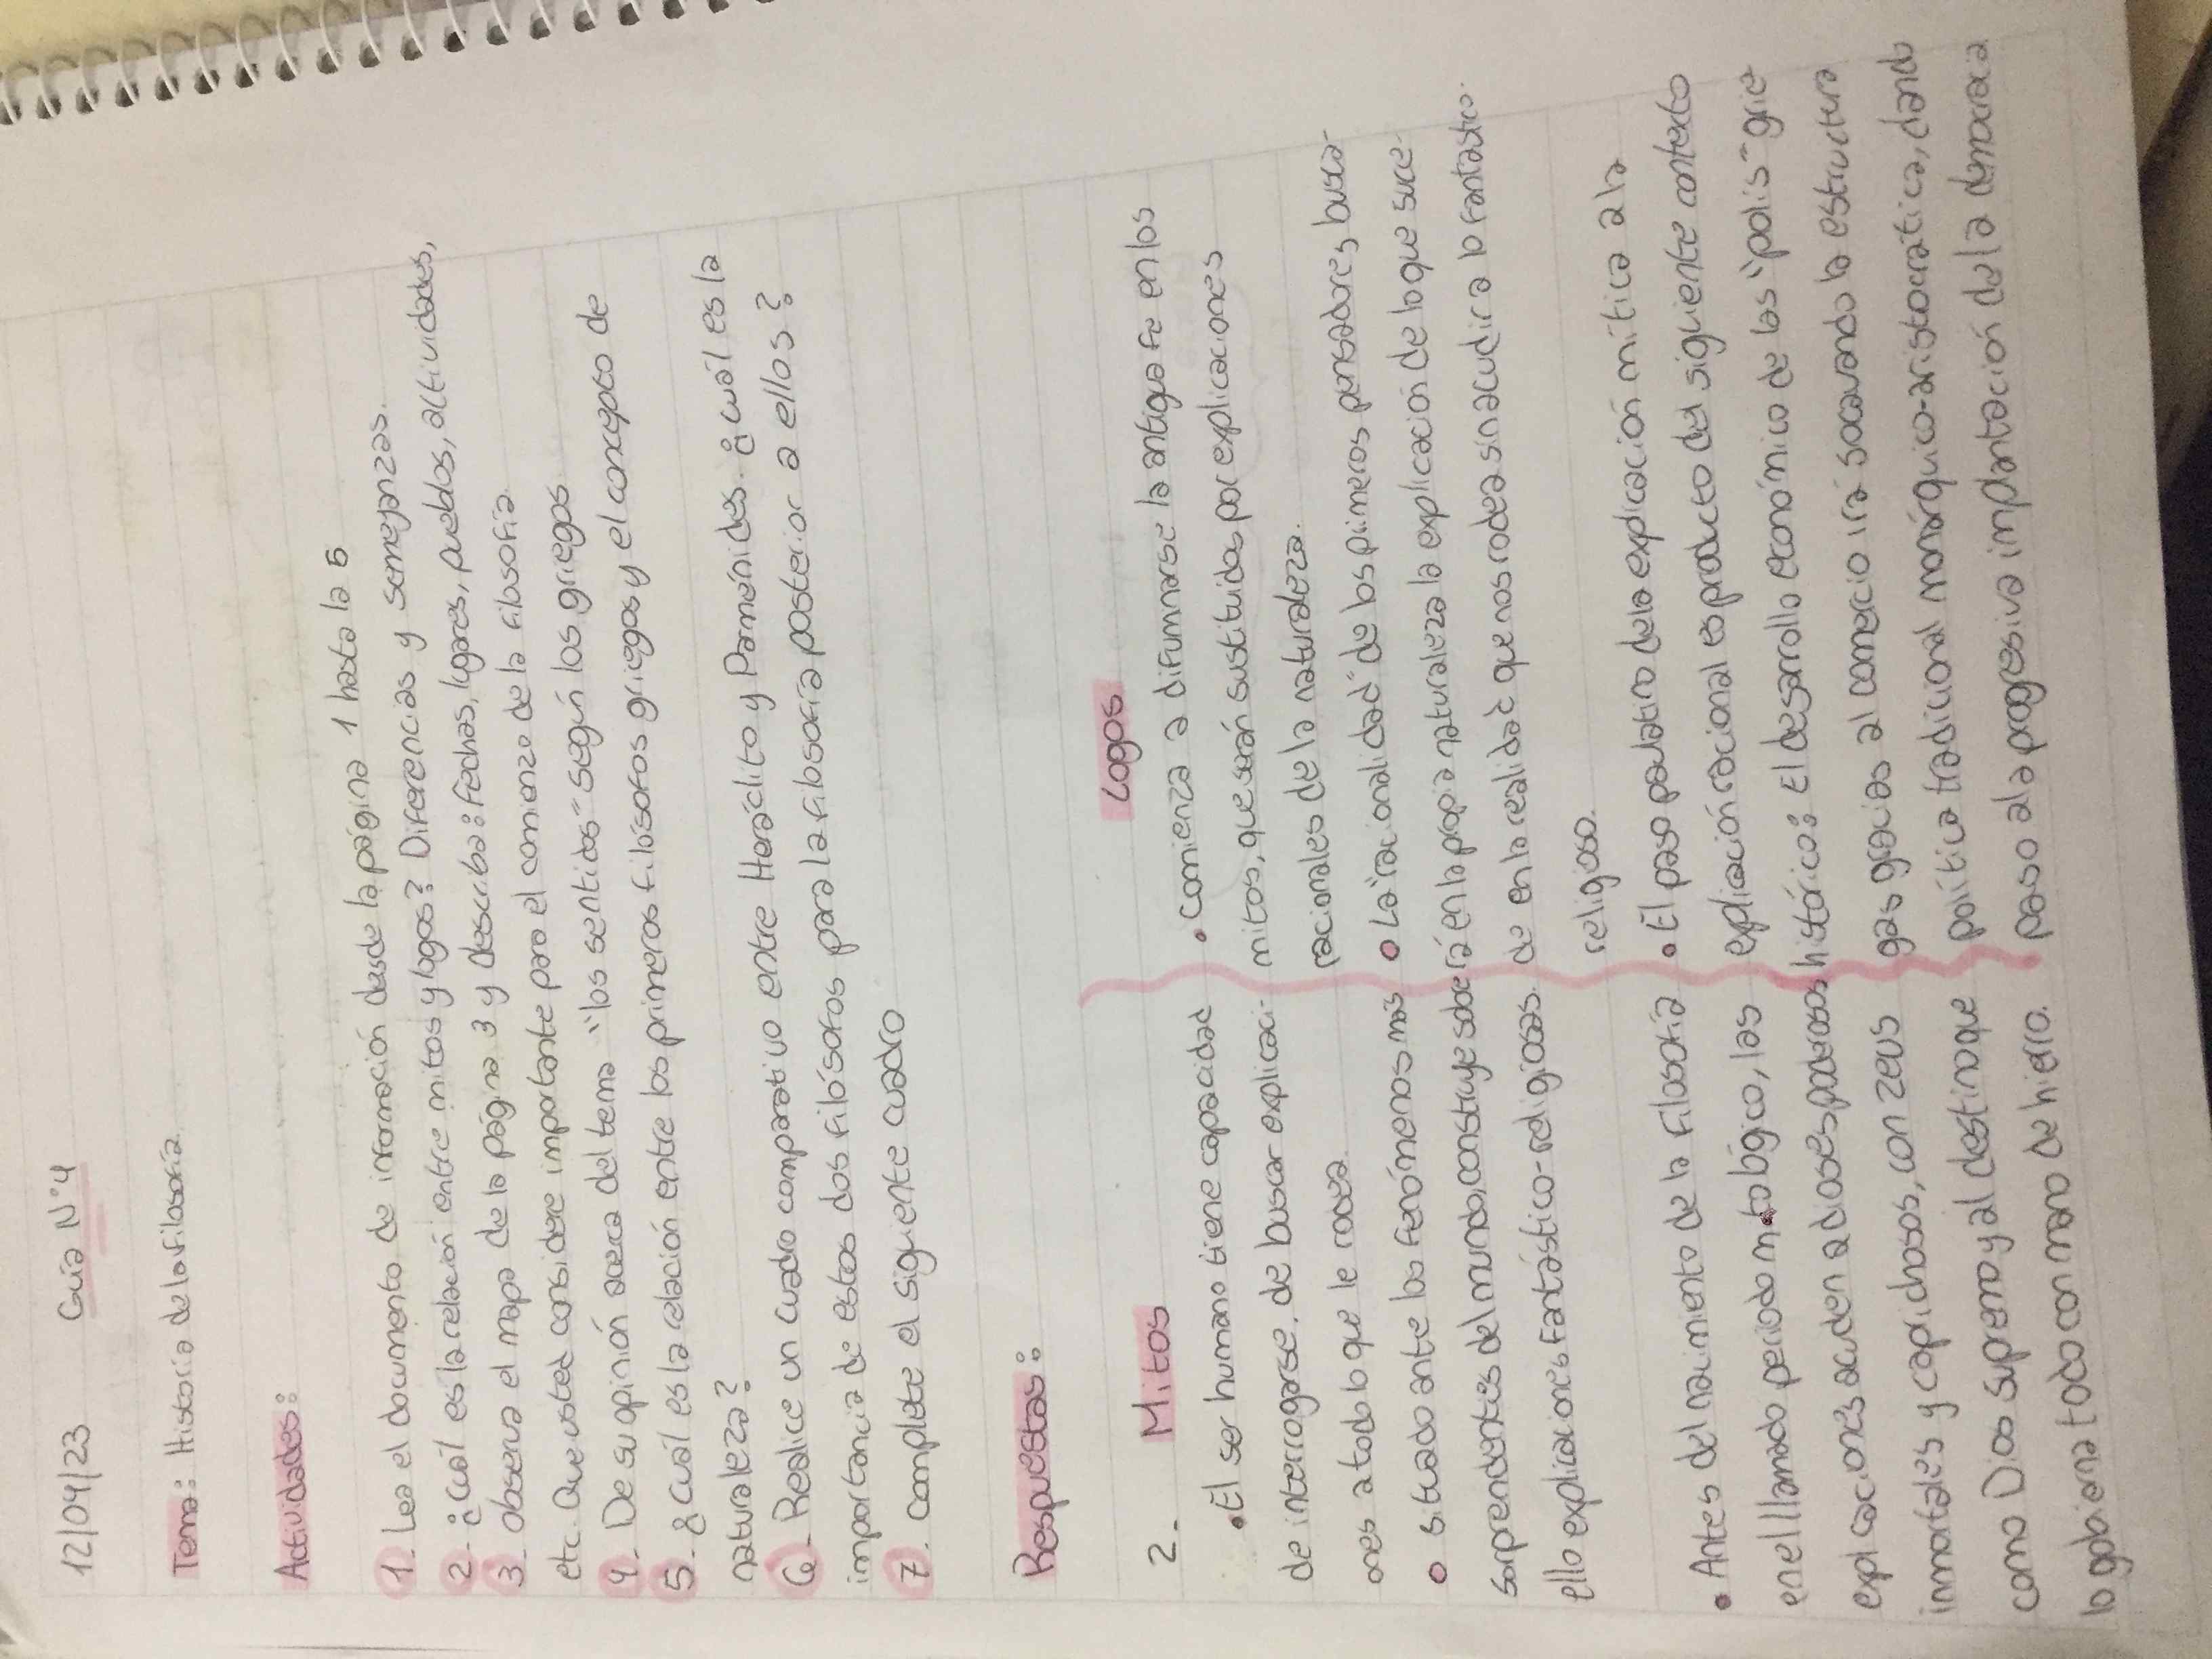 12/04/23 Guía N°4
Tema: Historia de la Filosofía
Actividades:
1- Lea el documento de información desde la página 1 hasta la 5
2- ¿Cuál es la relación entre mitos y logos? Diferencias y semejanzas.
3- Observa el mapa de la página 3 y describa: Fechas, lugares, pueblos, actividades,
etc. Que usted considere importante para el comienzo de la Filosofía.
4- De su opinión acerca del tema "los sentidos" según los griegos.
5- ¿Cuál es la relación entre los primeros Filósofos griegos y el concepto de
naturaleza?
6- Realice un cuadro comparativo entre Heráclito y Parménides. ¿Cuál es la
importancia de estos dos Filósofos para la Filosofía posterior a ellos?
7- Complete el siguiente cuadro
Respuestas:
2- Mitos
• El ser humano tiene capacidad
de interrogarse, de buscar explicaci-
ones a todo lo que le rodea.
• situado ante los Fenómenos más
sorprendentes del mundo, construye sobre
ello explicaciones Fantástico-religiosas.
• Antes del nacimiento de la Filosofía
en el llamado periodo mitológico, las
explicaciones acuden a dioses poderosos
inmortales y caprichosos, con Zeus
como Dios supremo y al destino que
lo gobierna todo con mano de hierro.
Logos
• Comienza a difumarse la antigua Fe en los
mitos, que serán sustituidos por explicaciones
racionales de la naturaleza.
• La "racionalidad" de los primeros pensadores, busca-
rá en la propia naturaleza la explicación de lo que suce-
de en la realidad que nos rodea sin acudir a lo Fantástico-
religioso.
• El paso paulatino de la explicación mítica a la
explicación racional es producto del siguiente contexto
histórico: El desarrollo económico de las "polis" grie
gas gracias al comercio irá socavando la estructura
política tradicional monárquico-aristocratica, dando
paso a la progresiva implantación de la democracia